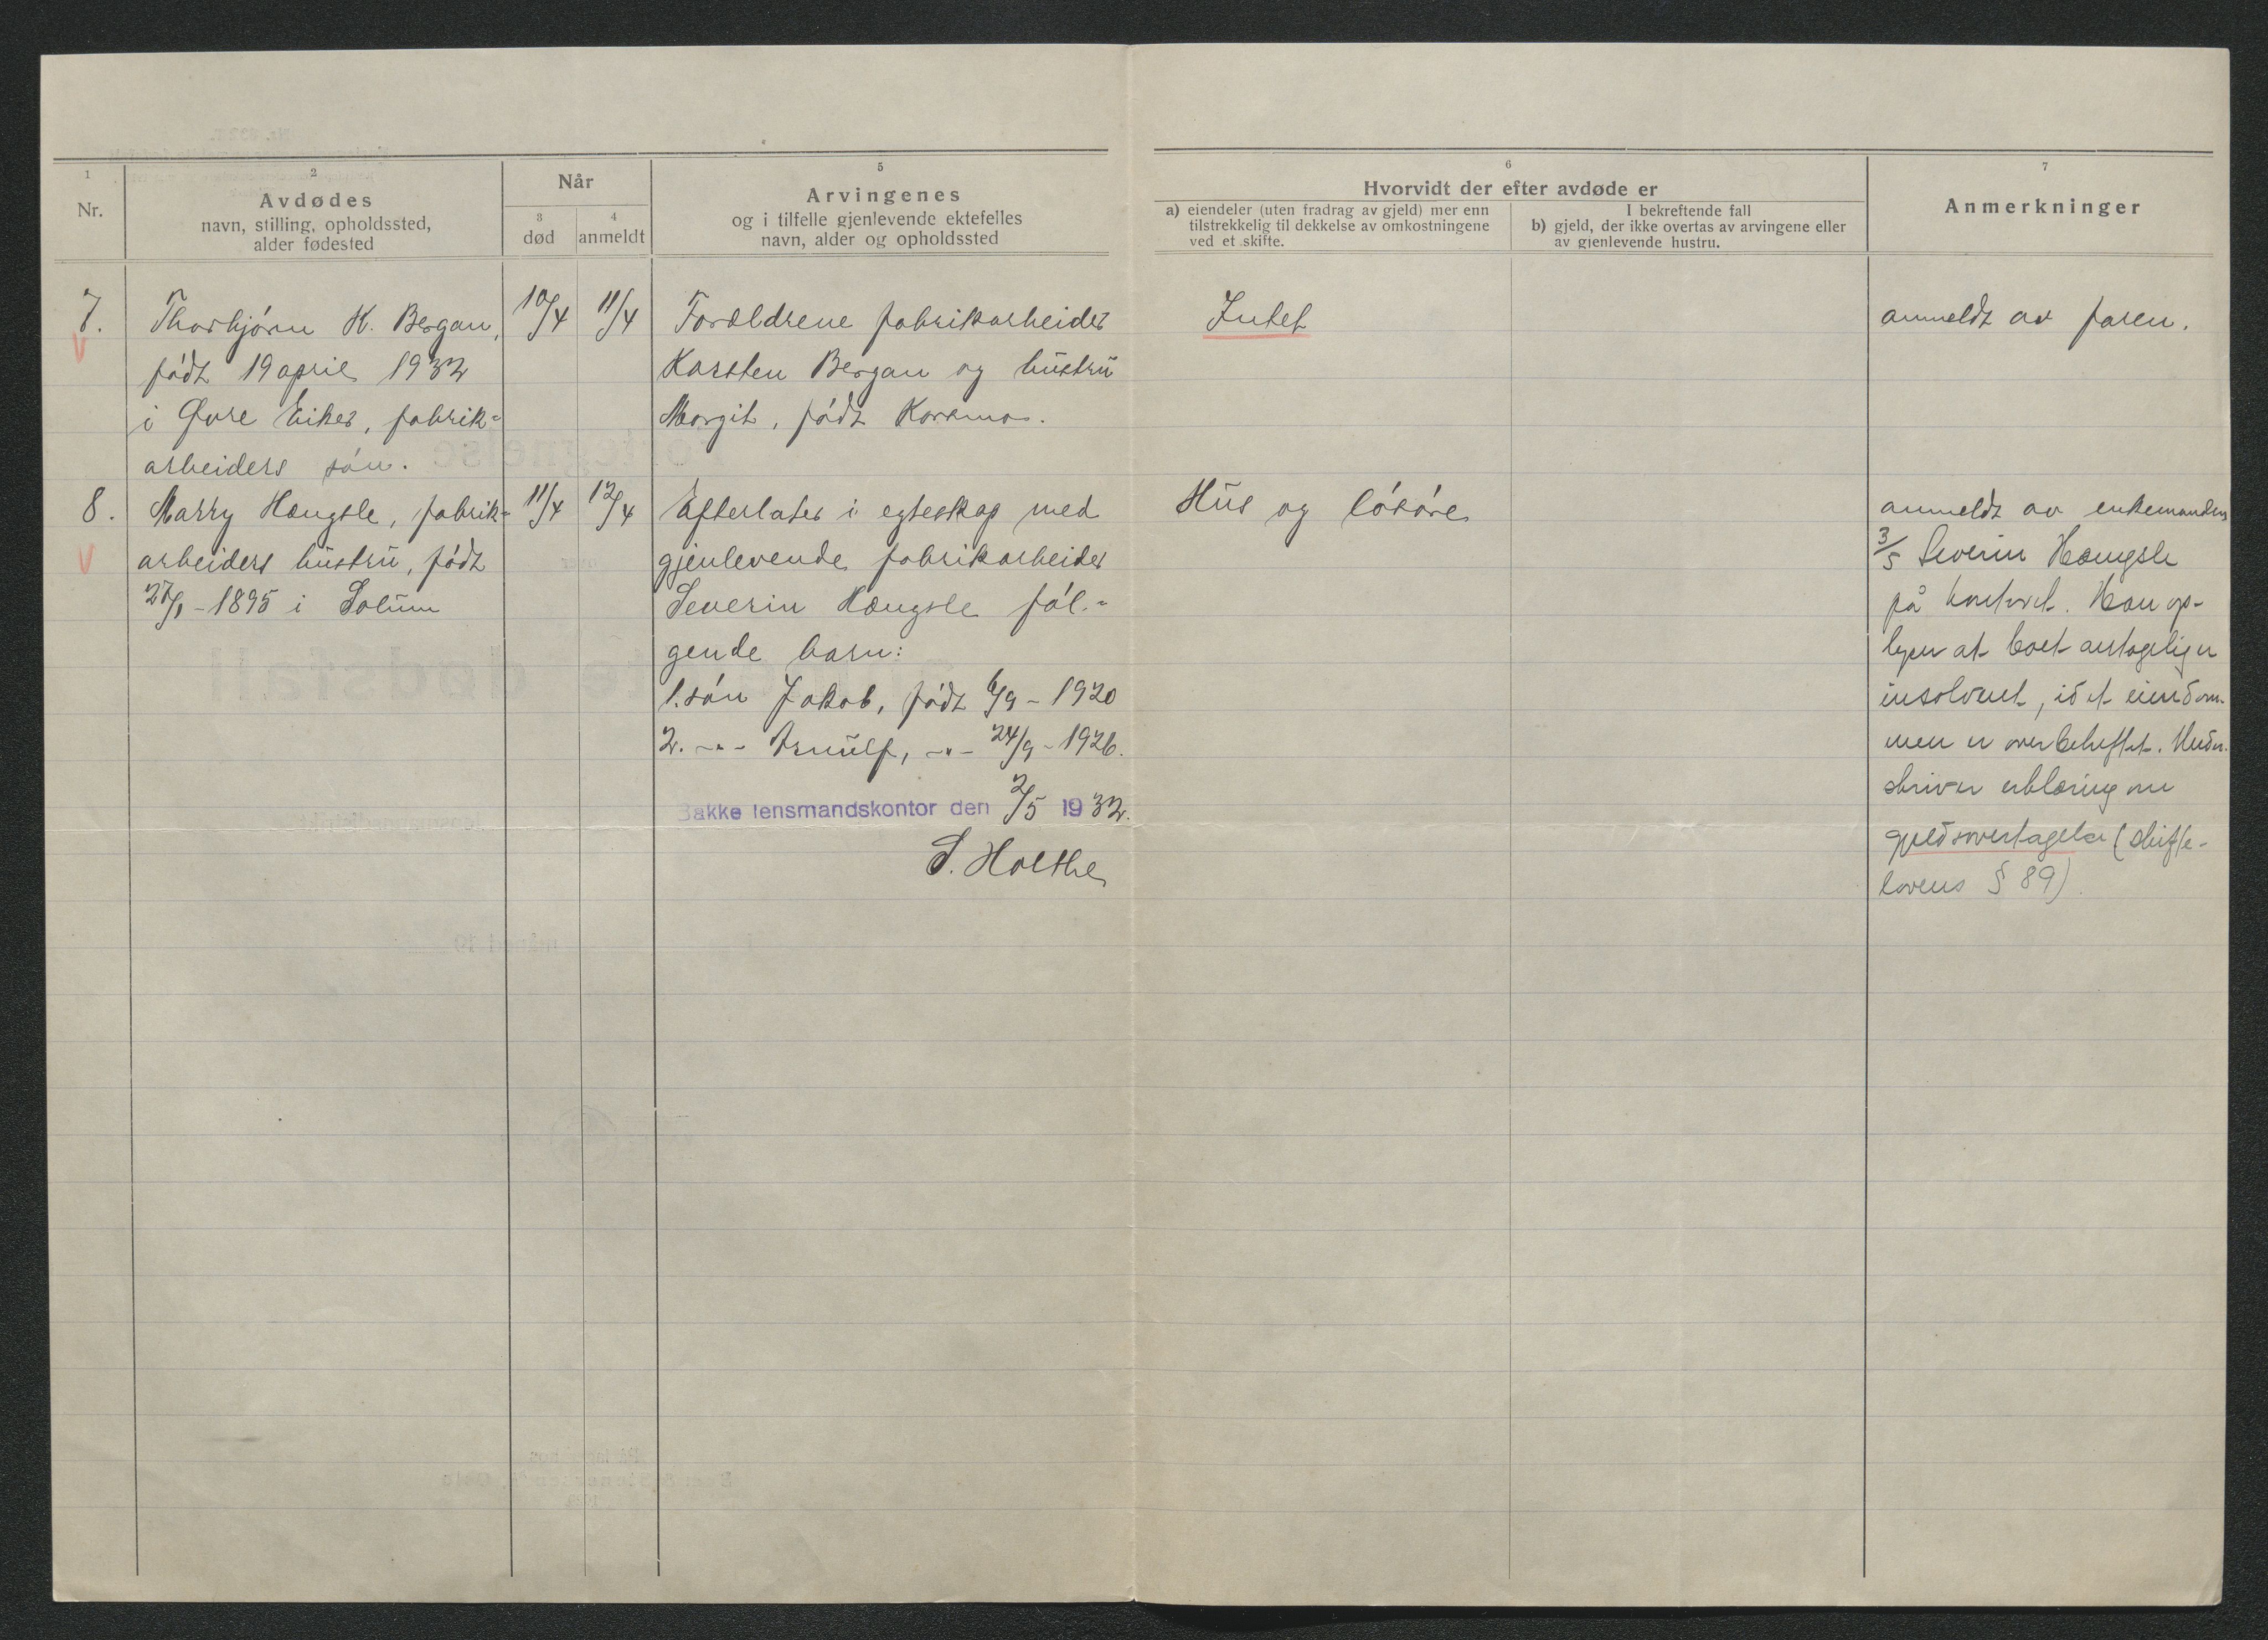 1
Nr.
2
Avdødes
navn, stilling, opholdssted,
alder fødested
Når
3
død
4
anmeldt
5
Arvingenes
og i tilfelle gjenlevende ektefelles
navn, alder og opholdssted
6
Hvorvidt der efter avdøde er
a) eiendeler (uten fradrag av gjeld) mer enn
tilstrekkelig til dekkelse av omkostningene
ved et skifte.
I bekreftende fall
b) gjeld, der ikke overtas av arvingene eller
av gjenlevende hustru.
7
Anmerkninger
7.
V
Thorbjörn K. Bergan,
födt 19 april 1932
i Øvre Eiker, fabrik=
arbeiders sön.
10/4
11/4
Forældrene fabrikarbeider
Karsten Bergan og hustru
Margit, födt
Intet
anmeldt av faren.
8.
V
Marry Hængsle, fabrik=
arbeiders hustru, födt
27/1 - 1895 i Solum
11/4
12/4
Efterlater i egteskap med
gjenlevende fabrikarbeider
Severin Hængsle föl.=
gende barn:
1. sön Jakob, födt 6/9 - 1920
2. -"- Arnulf, -"- 24/9 - 1926.
Bakke lensmandskontor den 2/5 1932.
S. Holthe
Hus og lösöre
anmeldt av enkemanden
3/5 Severin Hængsle
på kontoret. Han op-
lyser at boet antagelig er
insolvent, idet eiendom-
men er overbeheftet. Under-
skriver erklæring om
gjeldsovertagelse (skifte-
lovens § 89).